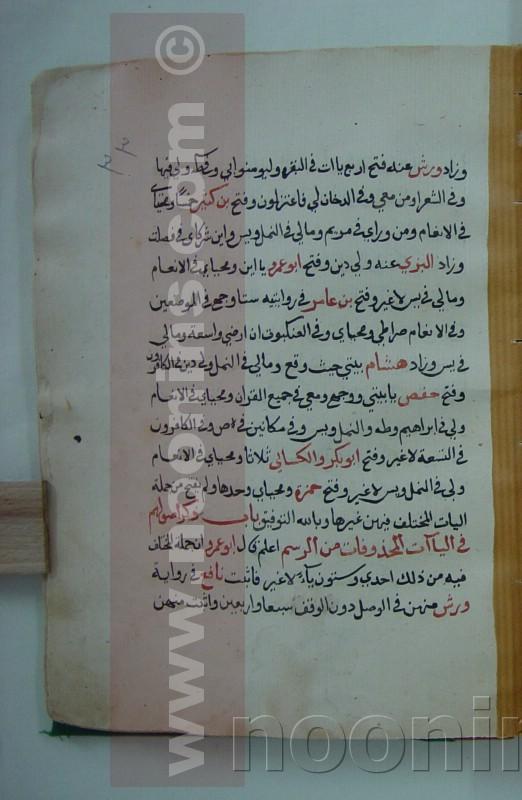 ٣٣
وزاد ورش عنه فتح اربع ياات في البقره وليومنوا بي وفي طه ولي فيها
وفي الشعرا ومن معي وفي الدخان لي فاعتزلون وفتح بن كثير خمسا ومحياي
في الانعام ومن وراي في مريم ومالي في النمل ويس واين شركاي في فصلت
وزاد البزي عنه ولي دين وفتح ابو عمرو يا اين ومحياي في الانعام
ومالي في يس لاغير وفتح بن عامر في روايتيه ستا وجهي في الموضعين
وفي الانعام صراطي ومحياي وفي العنكبوت ان ارضي واسعة ومالي
في يس وزاد هشام بيتي حيث وقع ومالي في النمل ولي دين في الكافرون
وفتح حفص يا بيتي ووجهي ومعي في جميع القران ومحياي في الانعام
ولي في ابراهيم وطه والنمل ويس وفي مكانين في ص وفي الكافرون
في التسعة لاغير وفتح ابو بكر والكسائي ثلاثا ومحياي في الانعام
ولي في النمل ويس لاغير وفتح حمزة ومحياي وحدها ولم يفتح من جملة
اليات المختلف فيهن غيرها وبالله التوفيق باب ذكر اصولهم
في الياآت المحذوفات من الرسم اعلم قال ابو عمرو ان جملة المختلف
فيه من ذلك احدي وستون ياء لاغير فاثبت نافع في رواية
ورش منهن في الوصل دون الوقف سبعا واربعين واثبت منهن
www.noorins.com ©
noorin